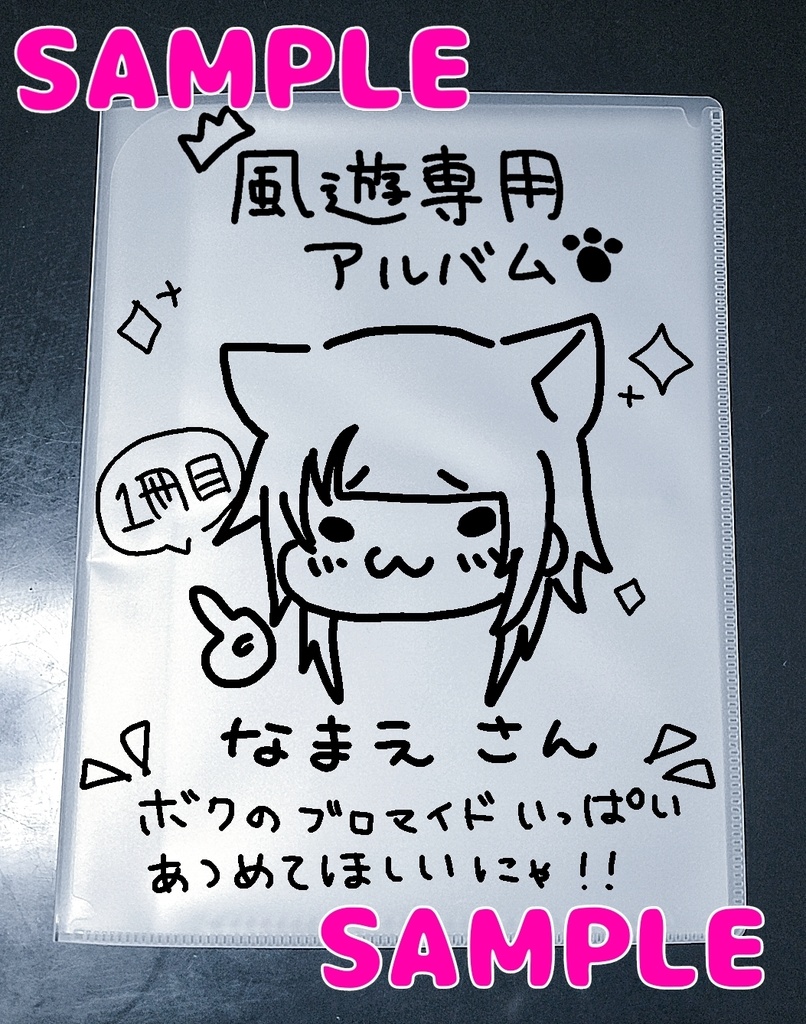 SAMPLE
風遊専用
アルバム
1冊目
なまえ さん
ボクのブロマイドいっぱい
あつめてほしいにゃ!!
SAMPLE